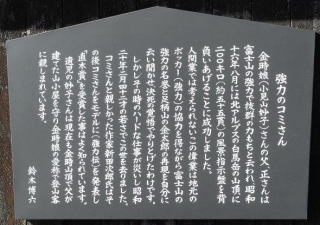 強力のコミさん
金時娘（小見山妙子）さんの父、正さんは
富士山の強力で抜群の力もちと言われ、昭和
十六年八月には北アルプスの白馬岳の山頂に
二〇〇キロ（約五十五貫）の風景指示盤を背
負いあげることに成功しました。
人間業では考えられないこの偉業は地元の
ボッカー（強力）の協力を得ながら富士山の
強力の名誉と足柄山の金太郎の再現を自分に
云い聞かせ決死の覚悟でやりとげたわけです。
しかしその時のハードな仕事が災いし昭和
二十年三月四十二才の若さでこの世を去りました。
コミさんと親しかった作家新田次郎氏はそ
の後コミさんをモデルに「強力伝」を発表し
「直木賞」を受賞した事はよく知られています。
遺児の妙子さんは現在も金時山頂で父が
建てた山小屋を守り金時娘の愛称で登山客
に親しまれています。
鈴木博六